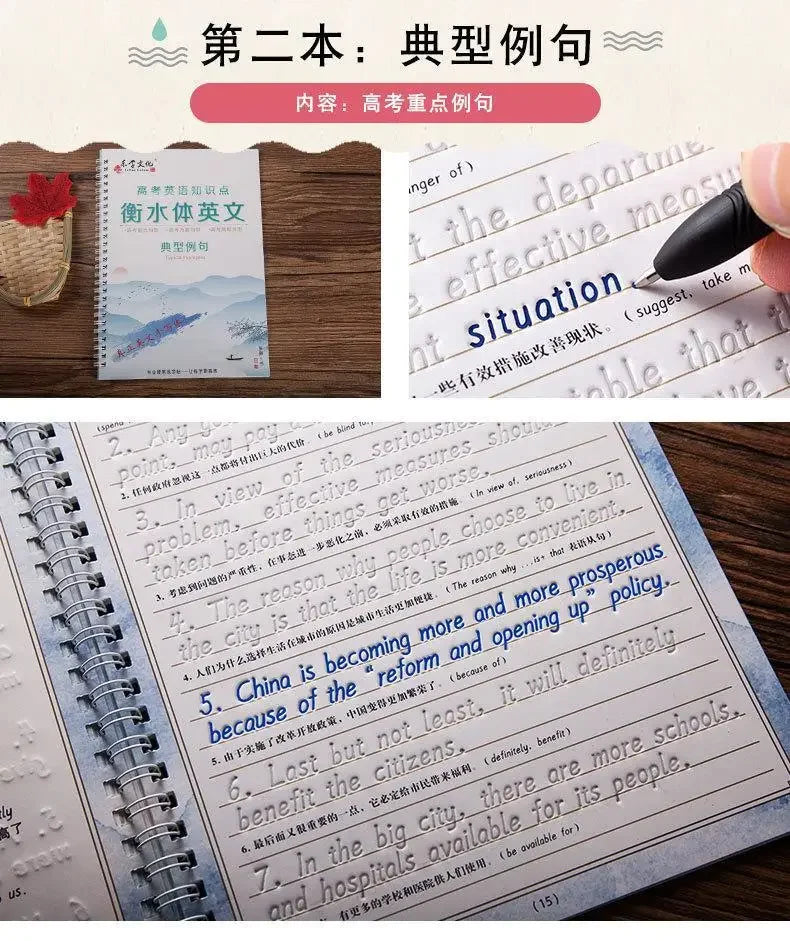 第二本：典型例句
内容：高考重点例句
东雪文化
高考英语知识点
衡水体英文
典型例句
nger of)
t the department
effective measu
nt situation.
(suggest, take m
一些有效措施改善现状。
able that th
2. Any go
point, may pay a
2. 任何政府忽视这一点都将付出巨大的代价。(be blind to, pay
3. In view of the seriousness
problem, effective measures should
taken before things get worse.
3. 考虑到问题的严重性，在事态进一步恶化之前，必须采取有效的措施。(In view of, seriousness)
4. The reason why people choose to live in
the city is that the life is more convenient.
4. 人们为什么选择生活在城市的原因是城市生活更加便捷。(The reason why ...is+ that 表语从句)
5. China is becoming more and more prosperous
because of the "reform and opening up" policy.
5. 由于实施了改革开放政策，中国变得更加繁荣了。(because of)
6. Last but not least, it will definitely
benefit the citizens.
6. 最后而又很重要的一点，它必定给市民带来福利。(definitely, benefit)
7. In the big city, there are more schools.
and hospitals available for its people.
有更多的学校和医院供人们使用。(be available for)
(15)
us.